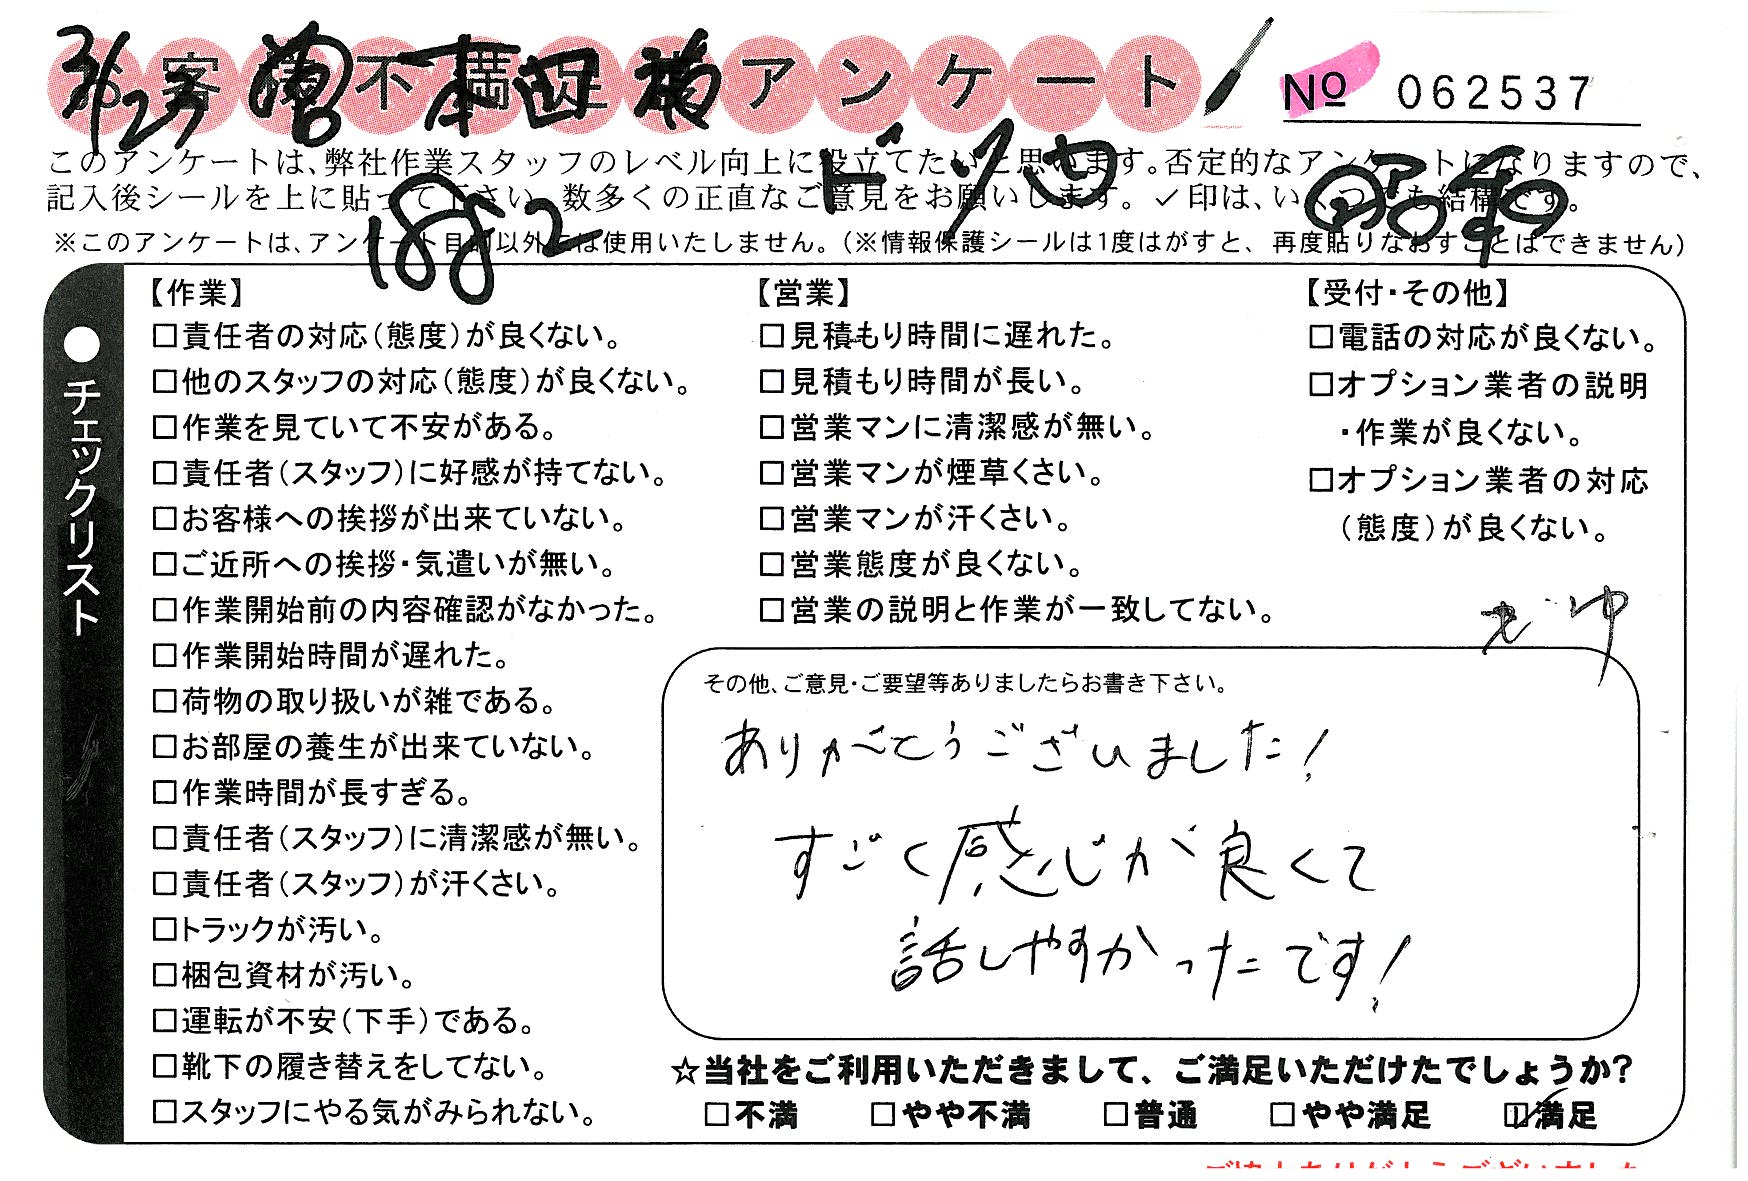 3/23 曽 本田 様
お客様不満足度アンケート
No 062537
このアンケートは、弊社作業スタッフのレベル向上に役立てたいと思います。否定的なアンケートになりますので、
記入後シールを上に貼って下さい。数多くの正直なご意見をお願いします。✓印は、いくつでも結構です。
※このアンケートは、アンケート目的以外には使用いたしません。(※情報保護シールは1度はがすと、再度貼りなおすことはできません)
1882
●チェックリスト
【作業】
□責任者の対応(態度)が良くない。
□他のスタッフの対応(態度)が良くない。
□作業を見ていて不安がある。
□責任者(スタッフ)に好感が持てない。
□お客様への挨拶が出来ていない。
□ご近所への挨拶・気遣いが無い。
□作業開始前の内容確認がなかった。
□作業開始時間が遅れた。
□荷物の取り扱いが雑である。
□お部屋の養生が出来ていない。
□作業時間が長すぎる。
□責任者(スタッフ)に清潔感が無い。
□責任者(スタッフ)が汗くさい。
□トラックが汚い。
□梱包資材が汚い。
□運転が不安(下手)である。
□靴下の履き替えをしてない。
□スタッフにやる気がみられない。
【営業】
□見積もり時間に遅れた。
□見積もり時間が長い。
□営業マンに清潔感が無い。
□営業マンが煙草くさい。
□営業マンが汗くさい。
□営業態度が良くない。
□営業の説明と作業が一致してない。
【受付・その他】
□電話の対応が良くない。
□オプション業者の説明
・作業が良くない。
□オプション業者の対応
(態度)が良くない。
その他、ご意見・ご要望等ありましたらお書き下さい。
ありがとうございました!
すごく感じが良くて
話しやすかったです!
☆当社をご利用いただきまして、ご満足いただけたでしょうか?
□不満 □やや不満 □普通 □やや満足 ☑満足
ご協力ありがとうございました